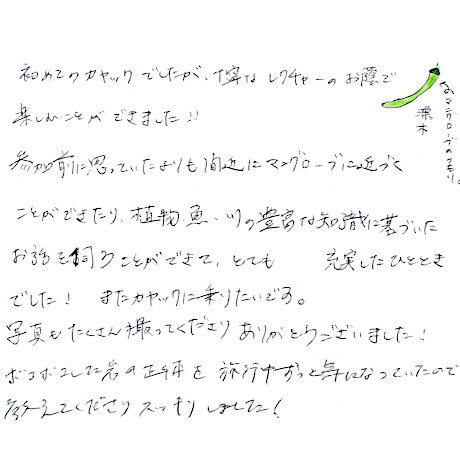 初めてのカヤックでしたが、丁寧なレクチャーのお蔭で
楽しむことができました!!
参加前に思っていたよりも間近にマングローブに近づく
ことができたり、植物、魚、川の豊富な知識に基づいた
お話を伺うことができて、とても 充実したひととき
でした! またカヤックに乗りたいです。
写真もたくさん撮ってくださりありがとうございました!
ボコボコした岩の正体を旅行中ずっと気になっていたので
教えてくださりスッキリしました!
↑マングローブのつもり。